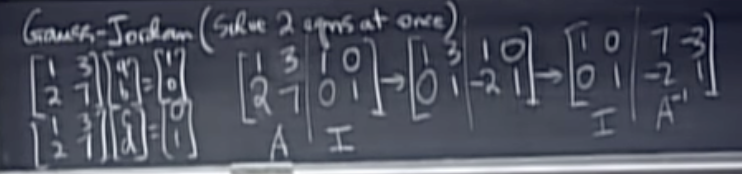 Gauss-Jordan (solve 2 eqns at once)
[1 3; 2 7] [a; b] = [1; 0]
[1 3; 2 7] [c; d] = [0; 1]
[1 3 | 1 0; 2 7 | 0 1] → [1 3 | 1 0; 0 1 | -2 1] → [1 0 | 7 -3; 0 1 | -2 1]
A I I A⁻¹